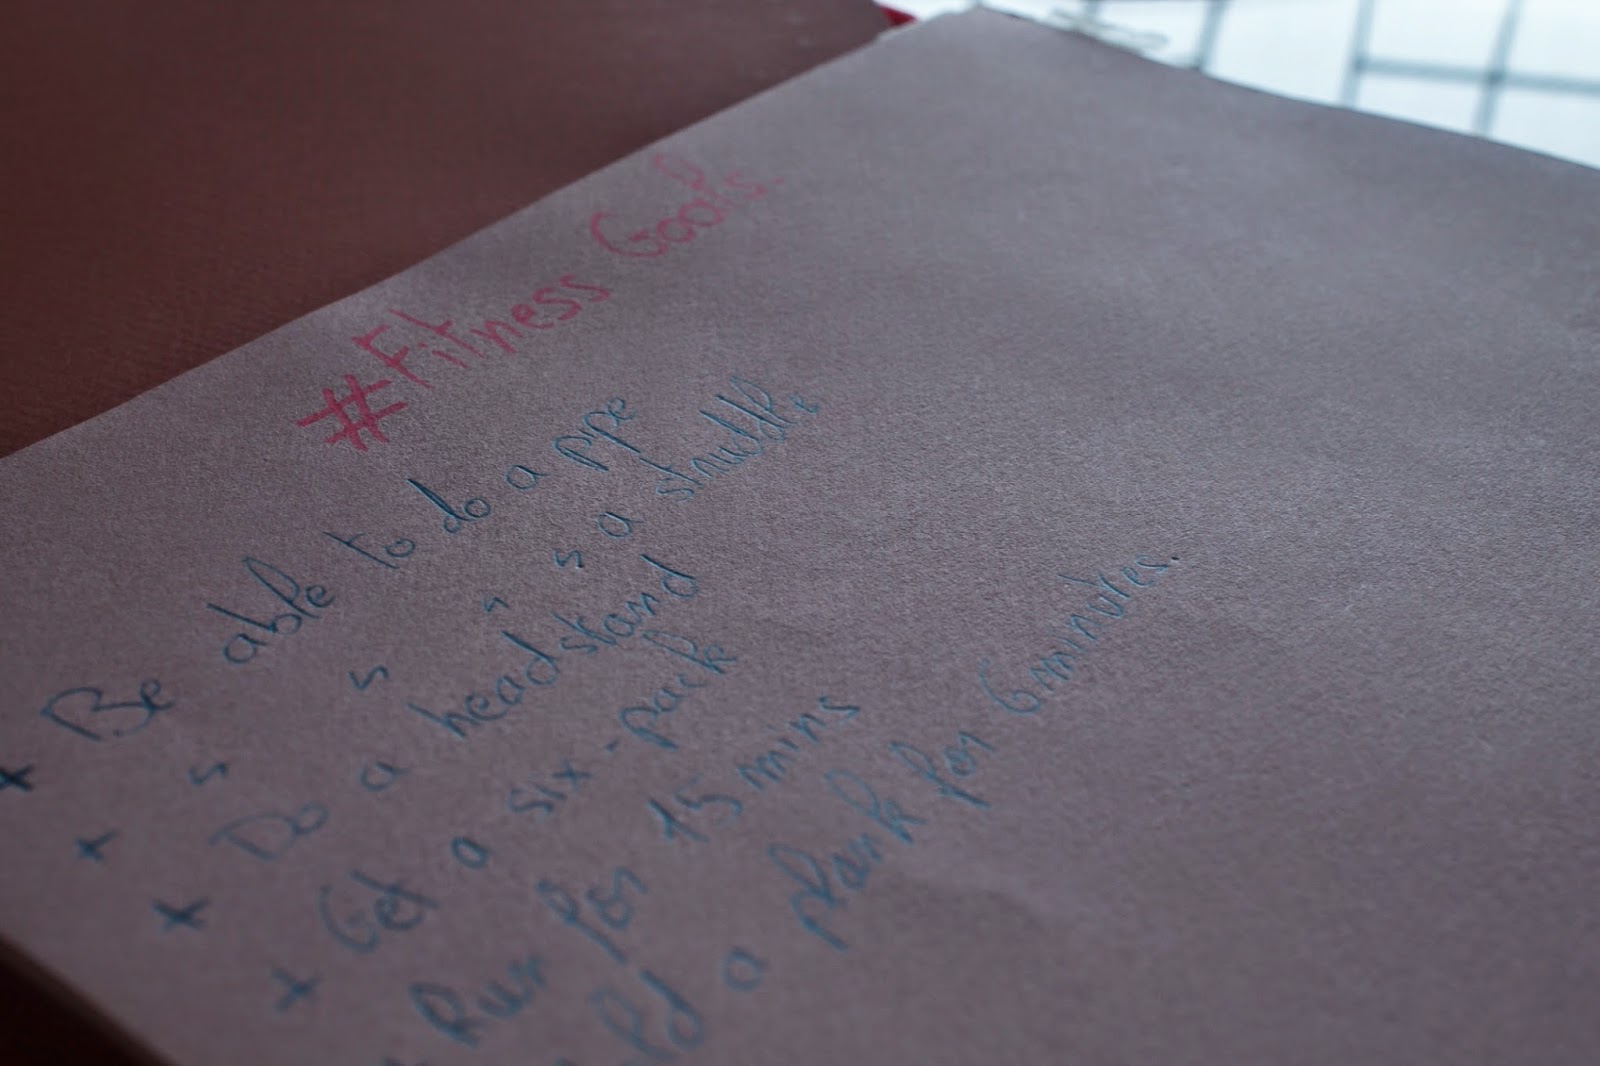 #Fitness Goals.
+ Be able to do a ppe
+ " " " " a straddle
+ Do a headstand
+ Get a six-pack
+ Run for 15 mins
old a plank for 6 minutes.